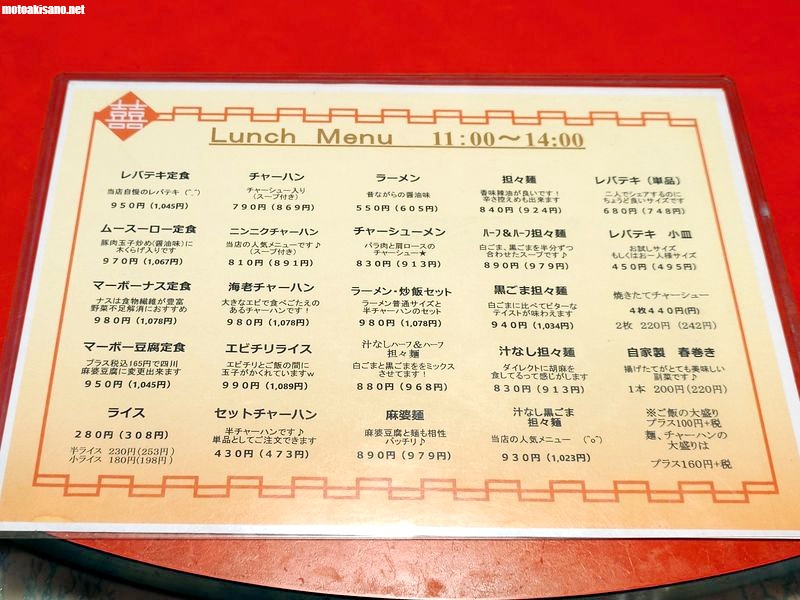 motoakisano.net
囍
Lunch Menu 11:00～14:00
レバテキ定食
当店自慢のレバテキ (^_^)
950円 (1,045円)
チャーハン
チャーシュー入り
(スープ付き)
790円 (869円)
ラーメン
昔ながらの醤油味
550円 (605円)
担々麺
香味辣油が良いです！
辛さ控えめも出来ます
840円 (924円)
レバテキ (単品)
二人でシェアするのに
ちょうど良いサイズです
680円 (748円)
ムースーロー定食
豚肉玉子炒め(醤油味)に
木くらげ入りです
970円 (1,067円)
ニンニクチャーハン
当店の人気メニューです♪
(スープ付き)
810円 (891円)
チャーシューメン
バラ肉と肩ロースの
チャーシューです★
830円 (913円)
ﾊｰﾌ&ﾊｰﾌ担々麺
白ごま、黒ごまを半分ずつ
合わせたスープです♪
890円 (979円)
レバテキ 小皿
お試しサイズ
もしくはお一人様サイズ
450円 (495円)
マーボーナス定食
ナスは食物繊維が豊富
野菜不足解消におすすめ
980円 (1,078円)
海老チャーハン
大きなエビで食べごたえの
あるチャーハンです！
980円 (1,078円)
ラーメン・炒飯セット
ラーメン普通サイズと
半チャーハンのセット
980円 (1,078円)
黒ごま担々麺
白ごまに比べてビターな
テイストが味わえます
940円 (1,034円)
焼きたてチャーシュー
4枚440円(円)
2枚 220円 (242円)
マーボー豆腐定食
プラス税込165円で四川
麻婆豆腐に変更出来ます
950円 (1,045円)
エビチリライス
エビチリとご飯の間に
玉子がかくれていますｗ
990円 (1,089円)
汁なしﾊｰﾌ&ﾊｰﾌ
担々麺
白ごまと黒ごまをミックス
させてます！
880円 (968円)
汁なし担々麺
ダイレクトに胡麻を
食してるって感じがします
830円 (913円)
自家製 春巻き
揚げたてがとても美味しい
副菜です♪
1本 200円(220円)
ライス
280円 (308円)
半ライス 230円(253円)
小ライス 180円(198円)
セットチャーハン
半チャーハンです♪
単品としてご注文できます
430円 (473円)
麻婆麺
麻婆豆腐と麺も相性
バッチリ♪
890円 (979円)
汁なし黒ごま
担々麺
当店の人気メニュー (^o^)
930円 (1,023円)
※ご飯の大盛り
プラス100円+税
麺、チャーハンの
大盛りは
プラス160円+税